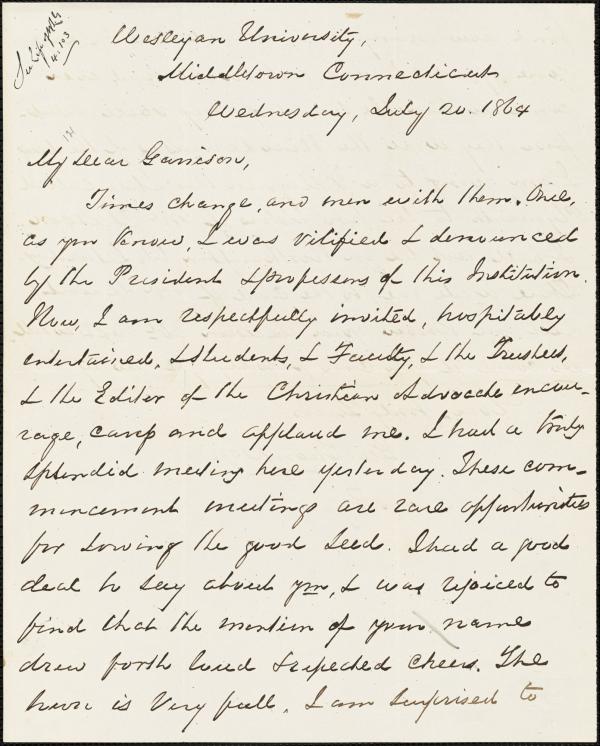 Wesleyan University,
Middletown Connecticut
Wednesday, July 20. 1864
My Dear Garrison,
Times change, and men with them. Once,
as you know, I was vilified & denounced
by the President & professors of this Institution.
Now, I am respectfully invited, hospitably
entertained, & Students, & Faculty, & the Trustees,
& the Editor of the Christian Advocate encour-
rage, and applaud me. I had a truly
splendid meeting here yesterday. These com-
mencement meetings are rare opportunities
for sowing the good seed. I had a good
deal to say about you, & was rejoiced to
find that the mention of your name
drew forth loud & repeated cheers. The
town is very full. I am surprised to